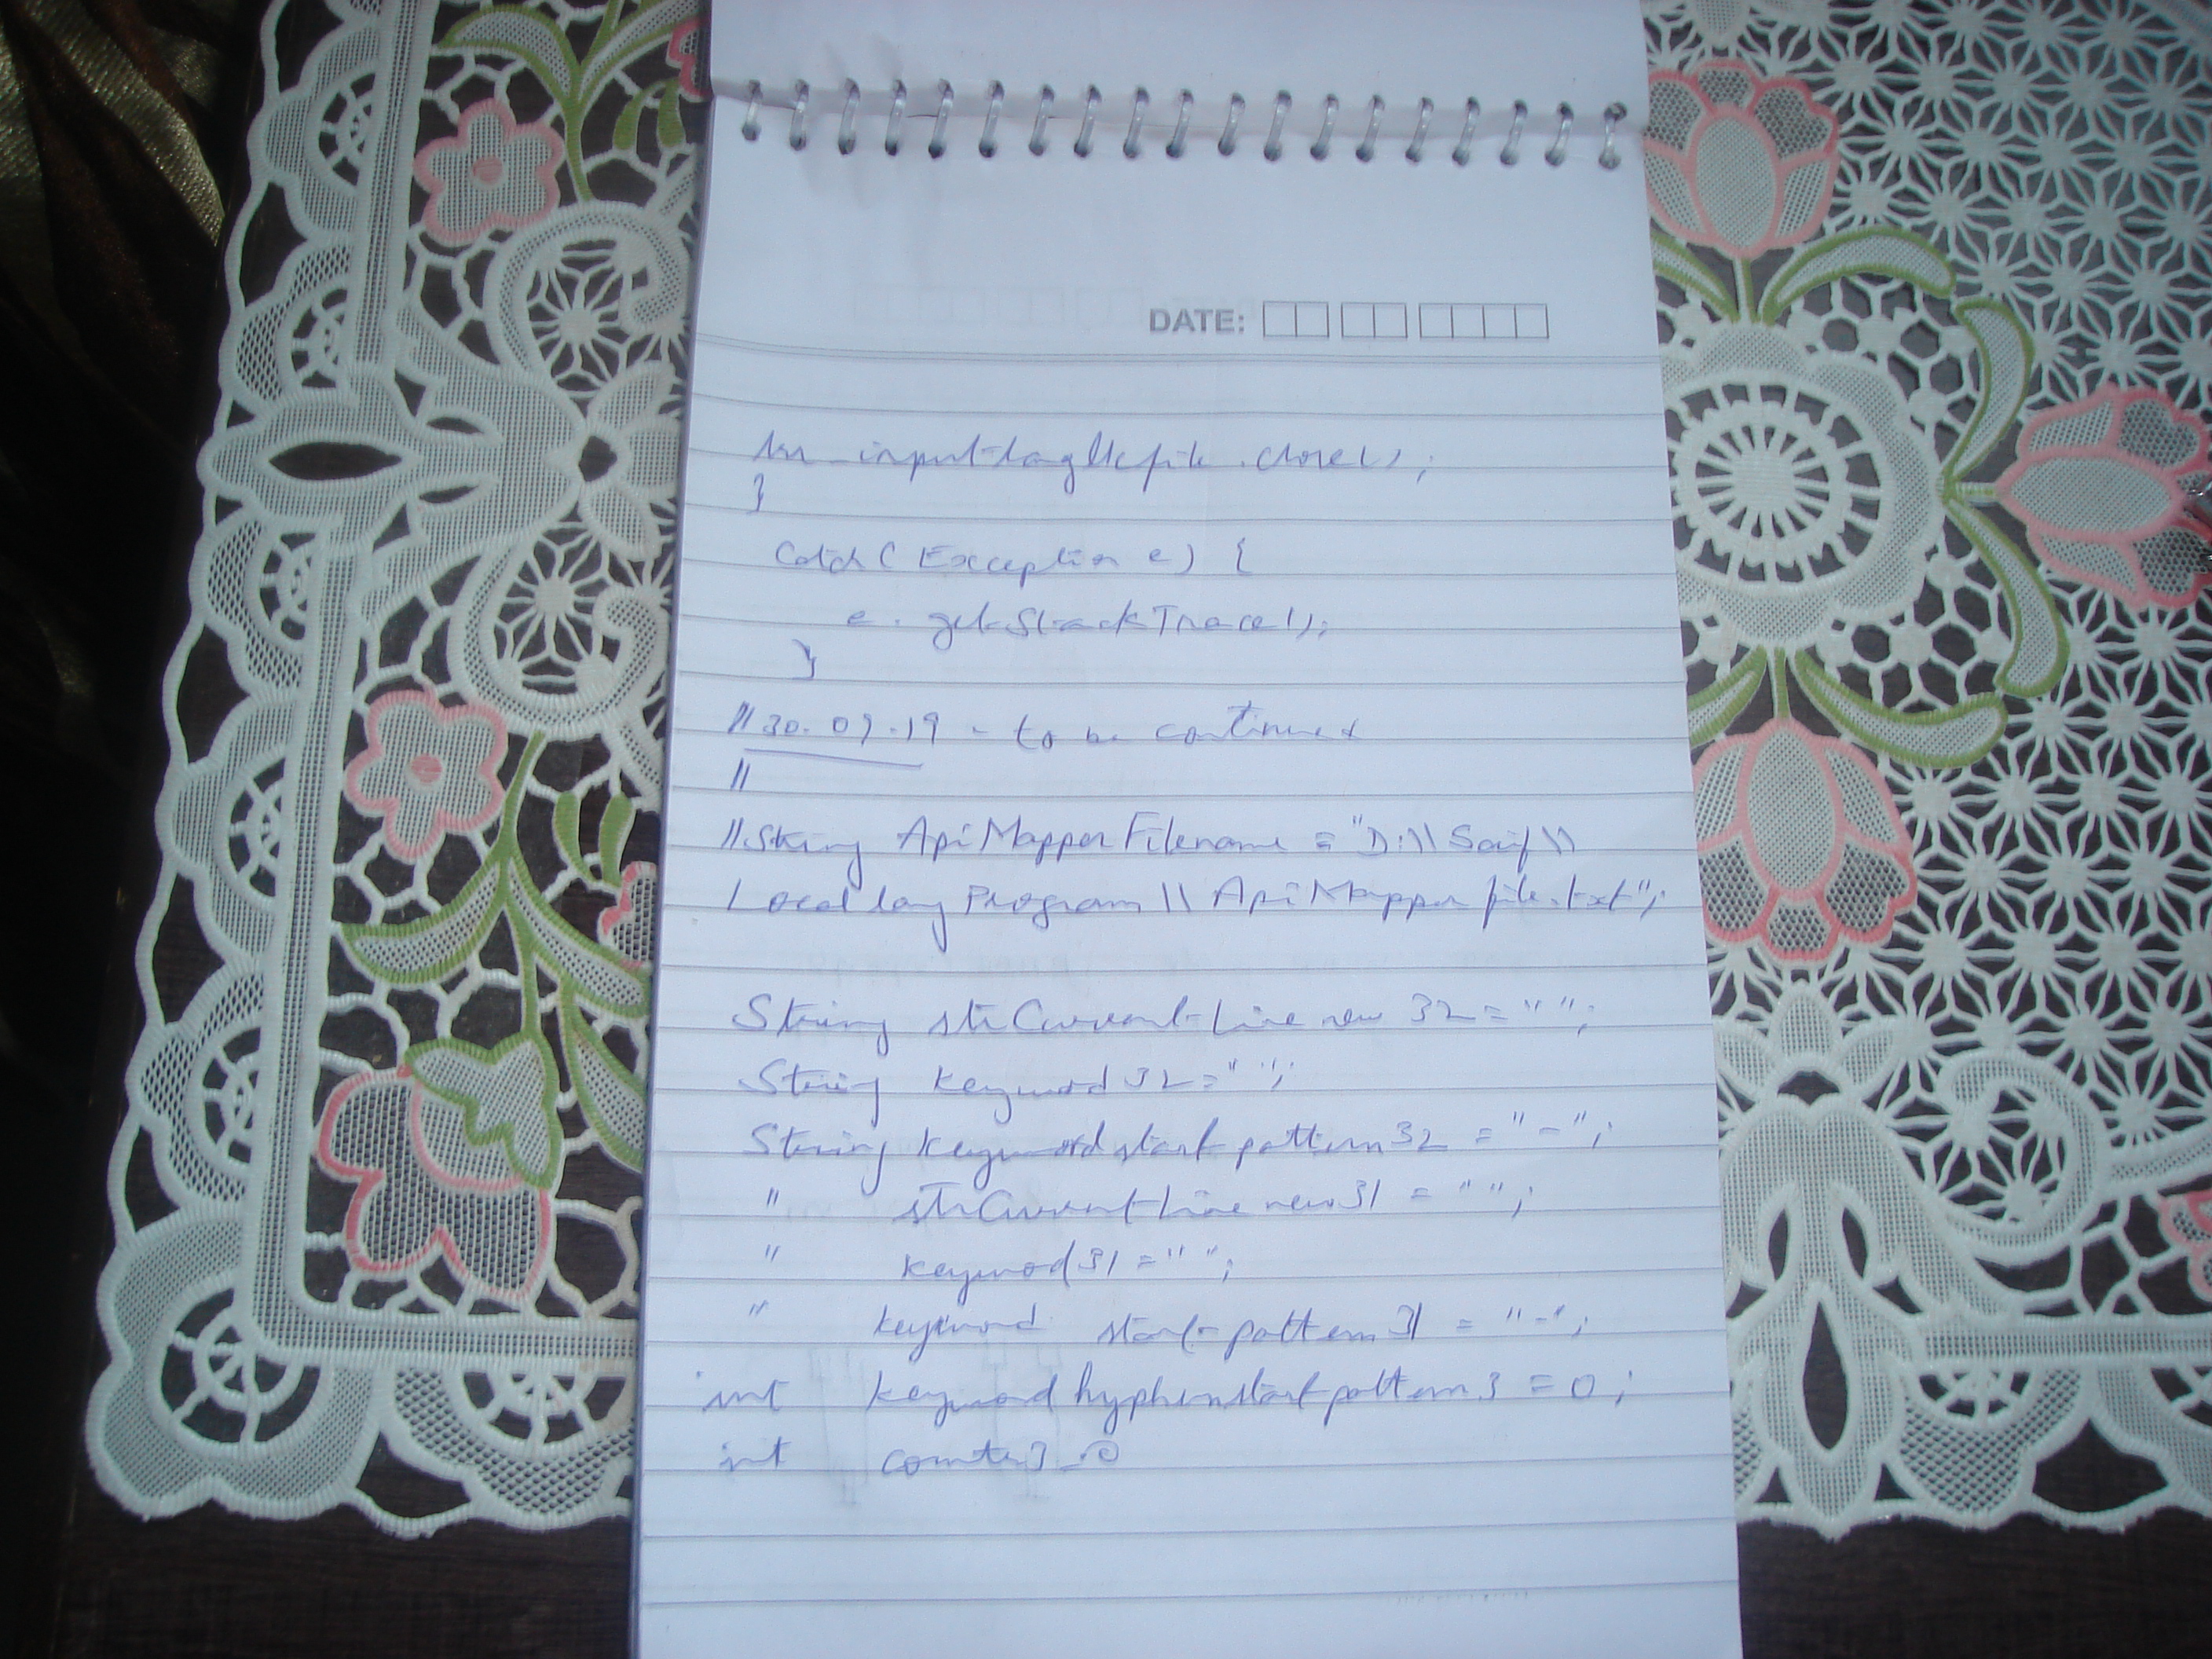 DATE:
.close();
}
catch(Exception e) {
e.getStackTrace();
}
//30.07.19 - to be continued
//
//String ApiMapperFilename = "D:\\Saif\\
LocallangProgram\\ApiMapperfile.txt";
String strCurrentLinenew32 = " ";
String keyword32=" ";
String keywordstartpattern32 = "-";
" strCurrentLinenew31 = " ";
" keyword31 = " ";
" keyword startpattern31 = "-";
int keywordhyphenstartpattern3 = 0;
int counter3